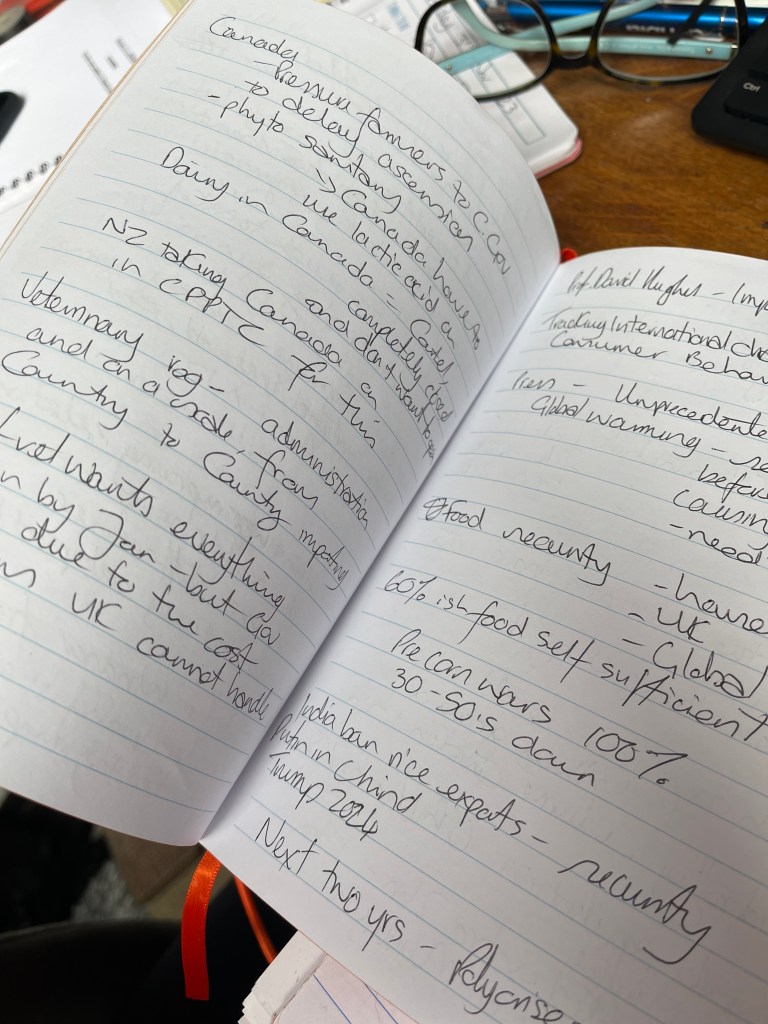 Canada
- Pressure farmers to C. Gov
to delay ascension
- phyto sanitary
>> Canada have to
use lactic acid on
Dairy in Canada = Cartel,
completely closed
and don't want to open
NZ taking Canada on
in CPPTC for this
Veterinary reg - administration
and on a scale, from
Country to County importing
wants everything
by Jan - but Gov
due to the cost
UK cannot handle
Prof. David Hughes -
Tracking International
Consumer
Press - 
Global warming -
- need
Food security - house
- UK
- Global
60% ish food self sufficient
Pre corn wars 100%
30 - 50's down
India ban rice exports - security
Putin in
Trump 2024
Next two yrs -
Ctrl